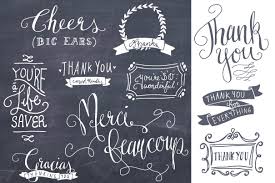 Cheers
(BIG EARS)
Thank
you
YOU'RE
A
Life
SAVER
THANK YOU
You're So
Wonderful
THANK YOU
For
EVERYTHING
Merci
Beaucoup
Gracias
THANK YOU